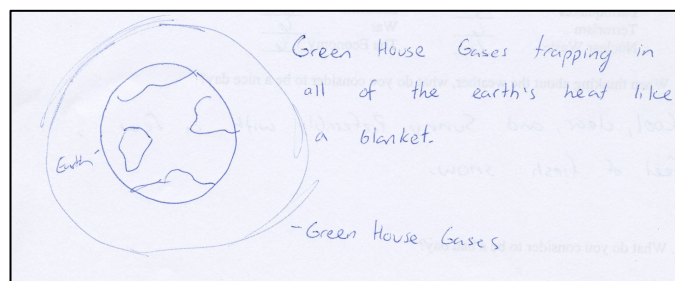 Green House Gases trapping in
all of the earth's heat like
a blanket.
Earth
- Green House Gases